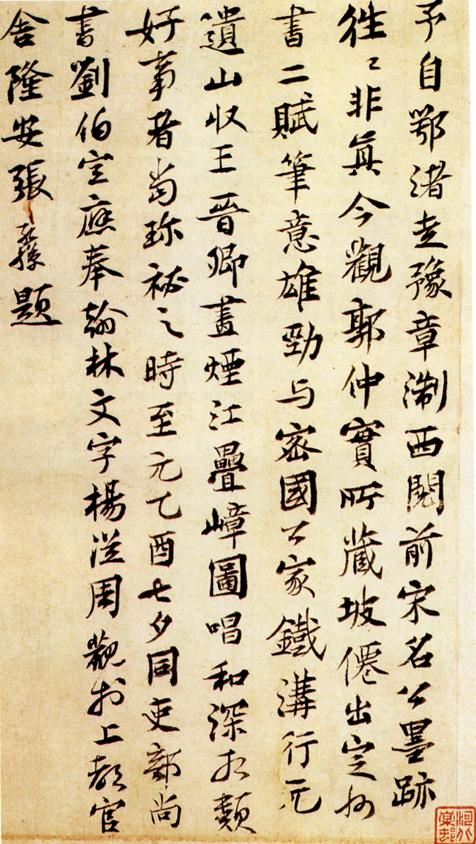 予自鄂渚走豫章淛西閱前宋名公墨跡
徃〻非真今觀郭仲實所藏坡僊出定州
書二賦筆意雄勁与密國公家鐵溝行元
遺山收王晉卿畫煙江疊嶂圖唱和深相類
好事者當珎祕之時至元乙酉七夕同吏部尚
書劉伯宣應奉翰林文字楊從周觀於上都官
舍隆安張孫題